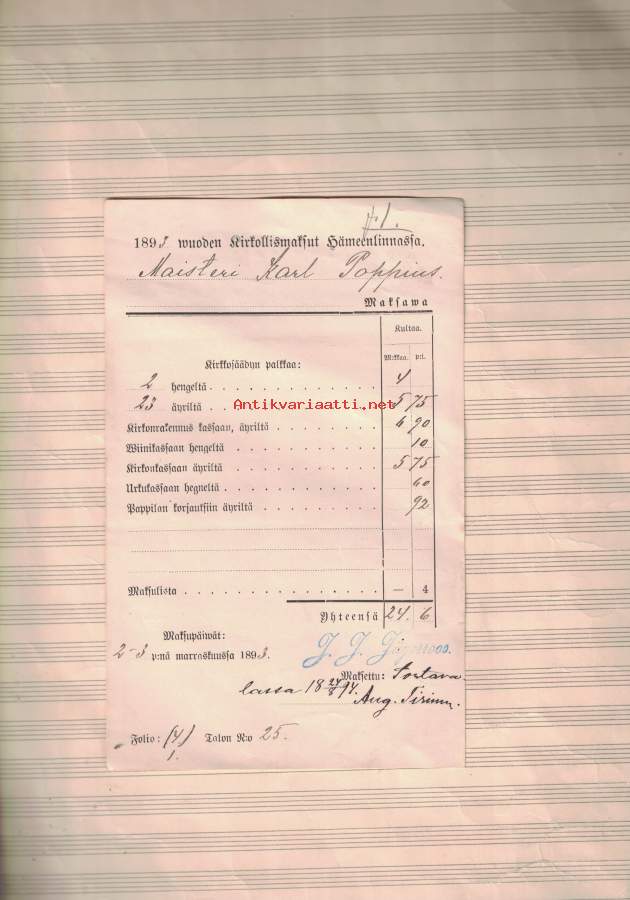 1893 wuoden Kirkollismaksut Hämeenlinnassa.
Maisteri Karl Poppius.
Maksawa
Kultaa.
Mrkkaa. p:i.
Kirkkosäädyn palkkaa:
2 hengeltä 4
23 äyriltä 5 75
Antikvariaatti.net
Kirkonrakennus kassaan, äyriltä 6 90
Wiinikassaan hengeltä 10
Kirkonkassaan äyriltä 5 75
Urkukassaan hegneltä 60
Pappilan korjautsiin äyriltä 92
Maksulista — 4
Yhteensä 24. 6
Maksupäiwät:
2-3 p:nä marraskuussa 1893.
J. J.
Maksettu: Sortava
lassa 18 24/8 94.
Aug.
Folio: (4) Talon N:o 25.
1.